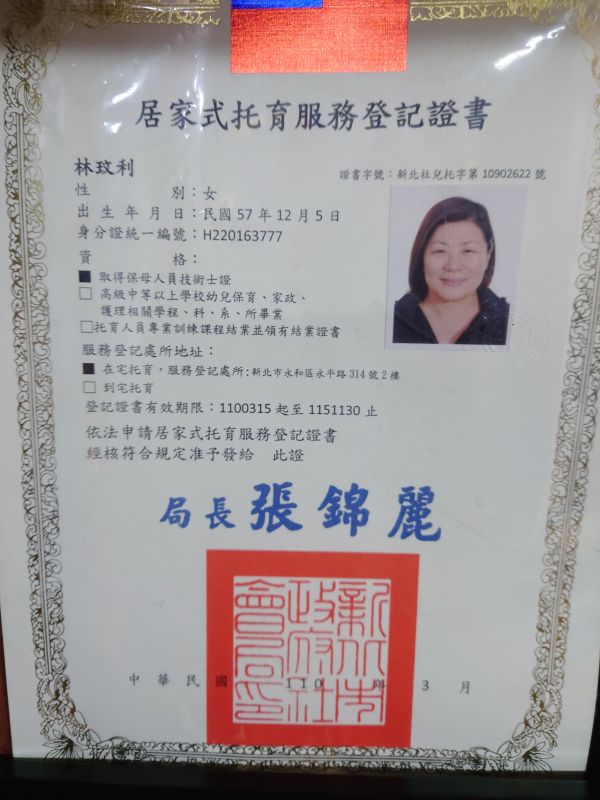 居家式托育服務登記證書
林玟利
證書字號：新北社兒托字第 10902622 號
性別：女
出生年月日：民國 57 年 12 月 5 日
身分證統一編號：H220163777
資格：
■ 取得保母人員技術士證
□ 高級中等以上學校幼兒保育、家政、
護理相關學程、科、系、所畢業
□托育人員專業訓練課程結業並領有結業證書
服務登記處所地址：
■ 在宅托育，服務登記處所：新北市永和區永平路 314 號 2 樓
□ 到宅托育
登記證書有效期限：1100315 起至 1151130 止
依法申請居家式托育服務登記證書
經核符合規定准予發給 此證
局長 張錦麗
新北市政府社會局印
中華民國 110 年 3 月